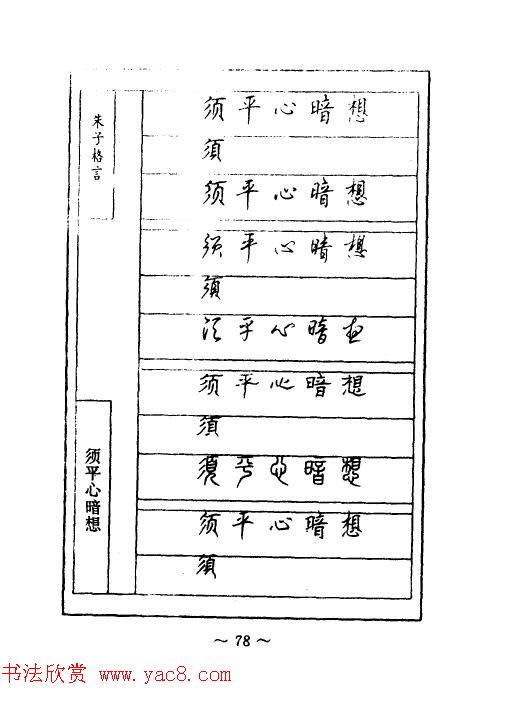 朱子格言
须平心暗想
须平心暗想
須
须平心暗想
须平心暗想
須
须平心暗想
须平心暗想
須
須平心暗想
须平心暗想
須
～ 78 ～
书法欣赏 www.yac8.com